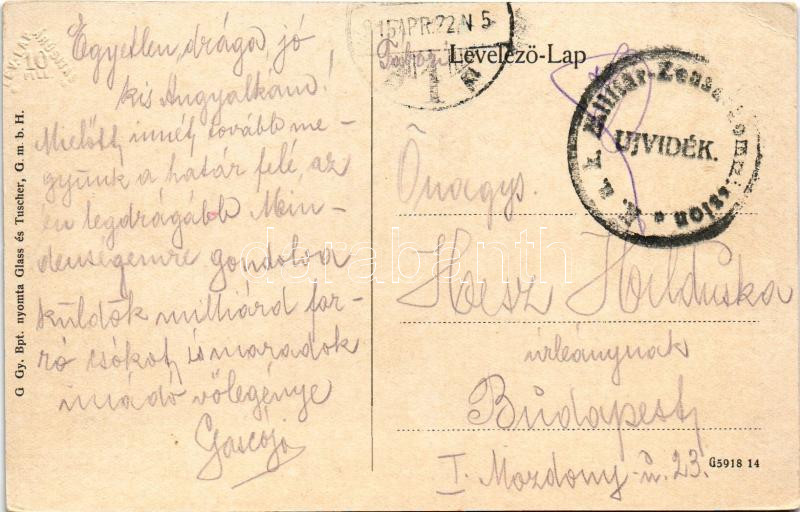 Egyetlen, drága, jó
kis Angyalkám!
Mielőtt innét tovább me-
gyünk a határ felé, az
én legdrágább Min-
denségemre gondolva
küldök milliárd for-
ró csókot, is maradok
imádó vőlegénye
Gascója
G Gy. Bpt. nyomta Glass és Tuscher, G. m. b. H.
915 APR. 22. N 5
Levelező-Lap
K. u. k. Militär-Zensurkommission
UJVIDÉK.
Önagys.
Hesz Hilduska
úrleánynak
Budapest
I. Mozdony-u. 23.
G5918 14
darabanth